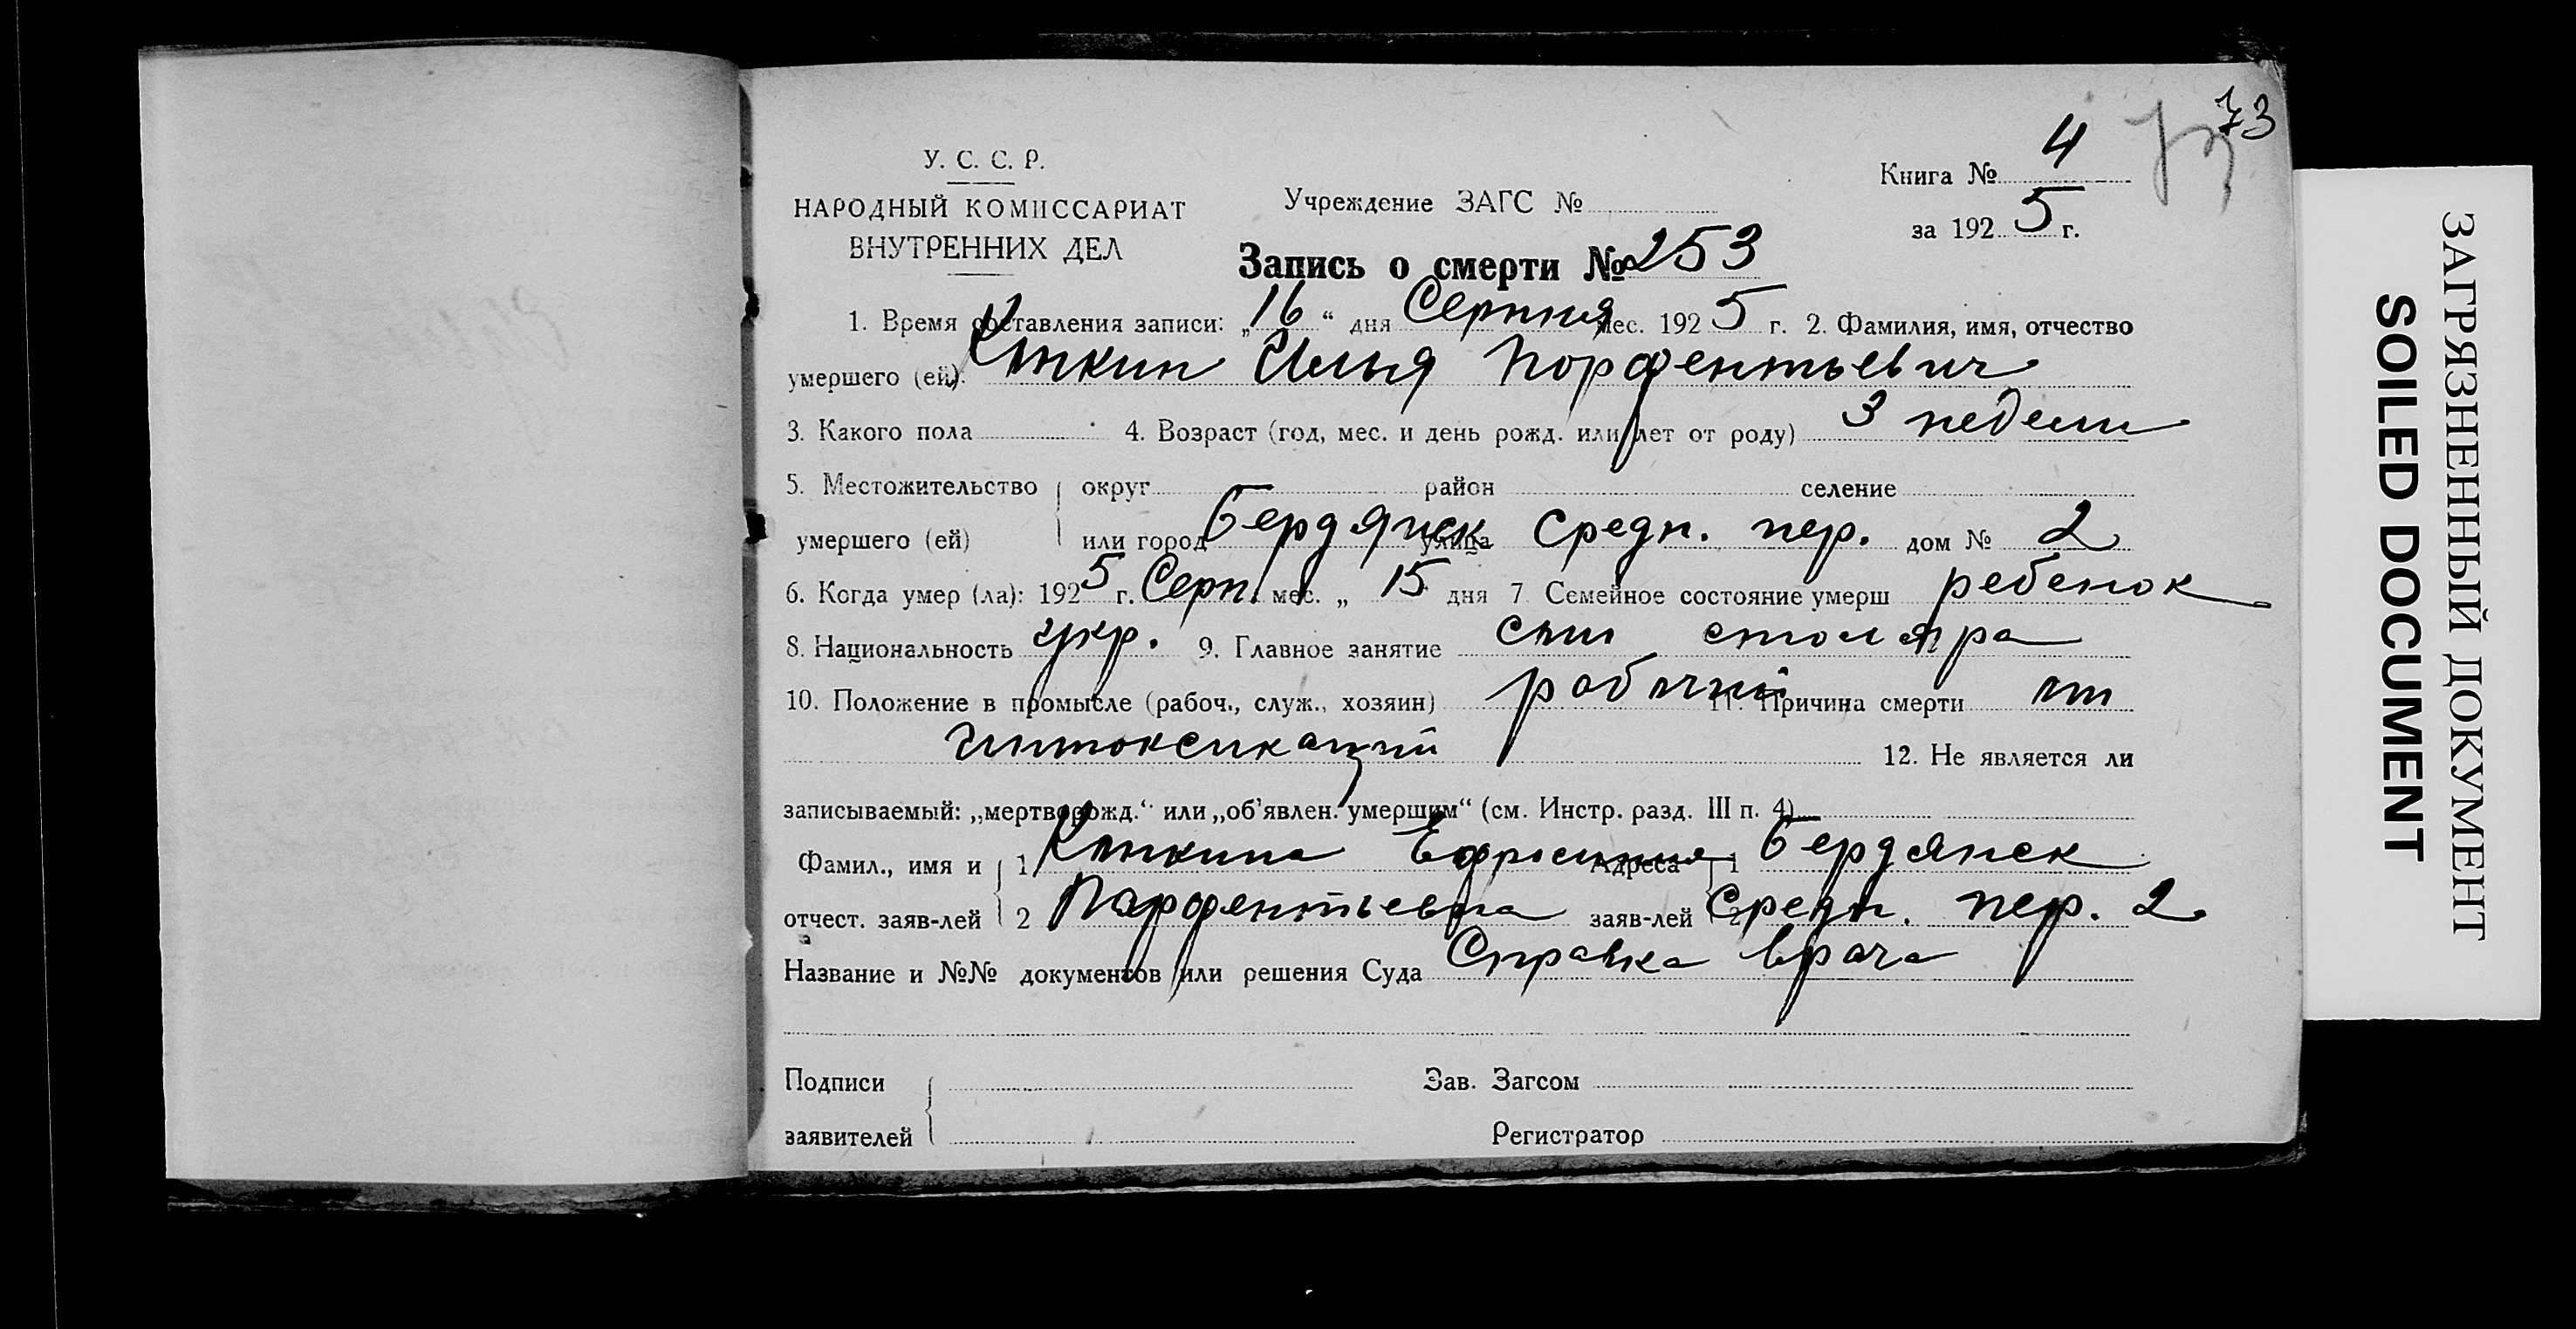 73
У. С. С. Р.
НАРОДНЫЙ КОМИССАРИАТ
ВНУТРЕННИХ ДЕЛ
Учреждение ЗАГС №
Книга № 4
за 1925 г.
Запись о смерти № 253
1. Время составления записи: „16“ дня Серпня мес. 1925 г. 2. Фамилия, имя, отчество
умершего (ей). Илья Порфентьевич
3. Какого пола 4. Возраст (год, мес. и день рожд. или лет от роду) 3 недели
5. Местожительство округ район селение
умершего (ей) или город Бердянск улица Средн. пер. дом № 2
6. Когда умер (ла): 1925 г. Серп. мес. „ 15 дня 7 Семейное состояние умерш ребенок
8. Национальность укр. 9. Главное занятие сын столяра
10. Положение в промысле (рабоч., служ., хозяин) рабочий 11. Причина смерти от
интоксикаций 12. Не является ли
записываемый: „мертворожд.“ или „об'явлен. умершим“ (см. Инстр. разд. III п. 4)
Фамил., имя и 1 Ефросиния Адреса 1 Бердянск
отчест. заяв-лей 2 Парфентьевна заяв-лей 2 Средн. пер. 2
Название и №№ документов или решения Суда Справка врача
Подписи Зав. Загсом
заявителей Регистратор
ЗАГРЯЗНЕННЫЙ ДОКУМЕНТ
SOILED DOCUMENT